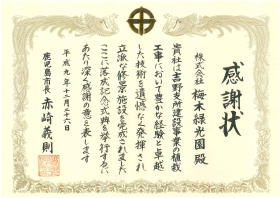 感謝状
株式会社 梅木緑光園 殿
貴社は吉野支所建設事業の植栽
工事において豊かな経験と卓越
した技術を遺憾なく発揮され
立派な修景施設を完成されました
ここに落成記念式典を挙行するに
あたり深く感謝の意を表します
平成九年十二月二十六日
鹿児島市長 赤崎義則